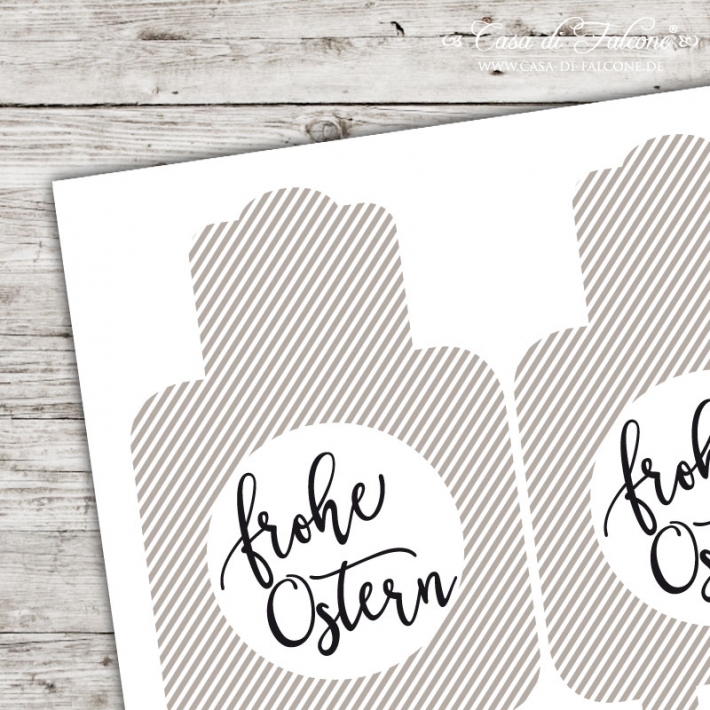 Casa di Falcone®
WWW.CASA-DI-FALCONE.DE
frohe
Ostern
froh
Os